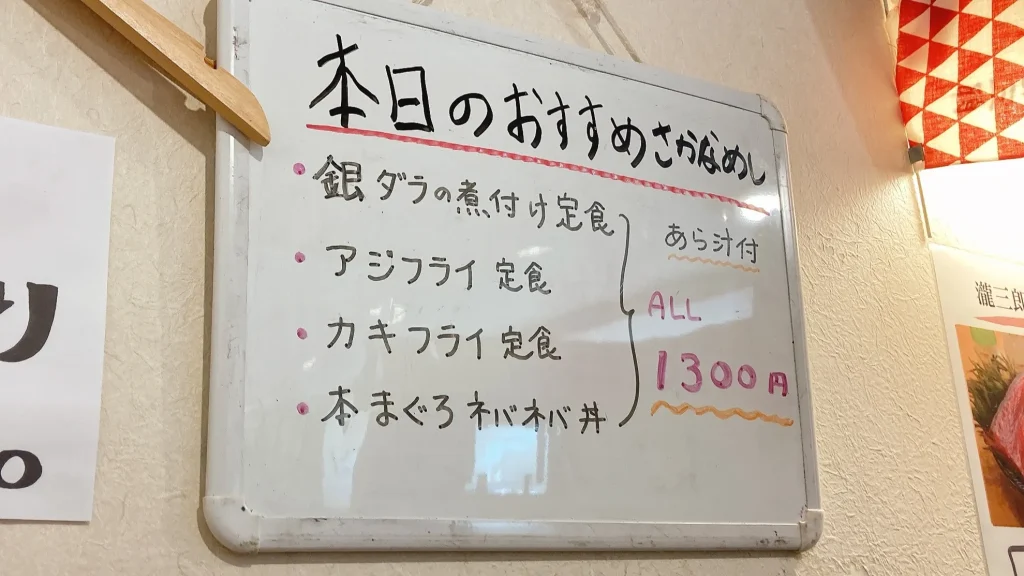 本日のおすすめさかなめし
・銀ダラの煮付け定食
・アジフライ定食
・カキフライ定食
・本まぐろネバネバ丼
あら汁付
ALL
1300円
り
瀧三郎